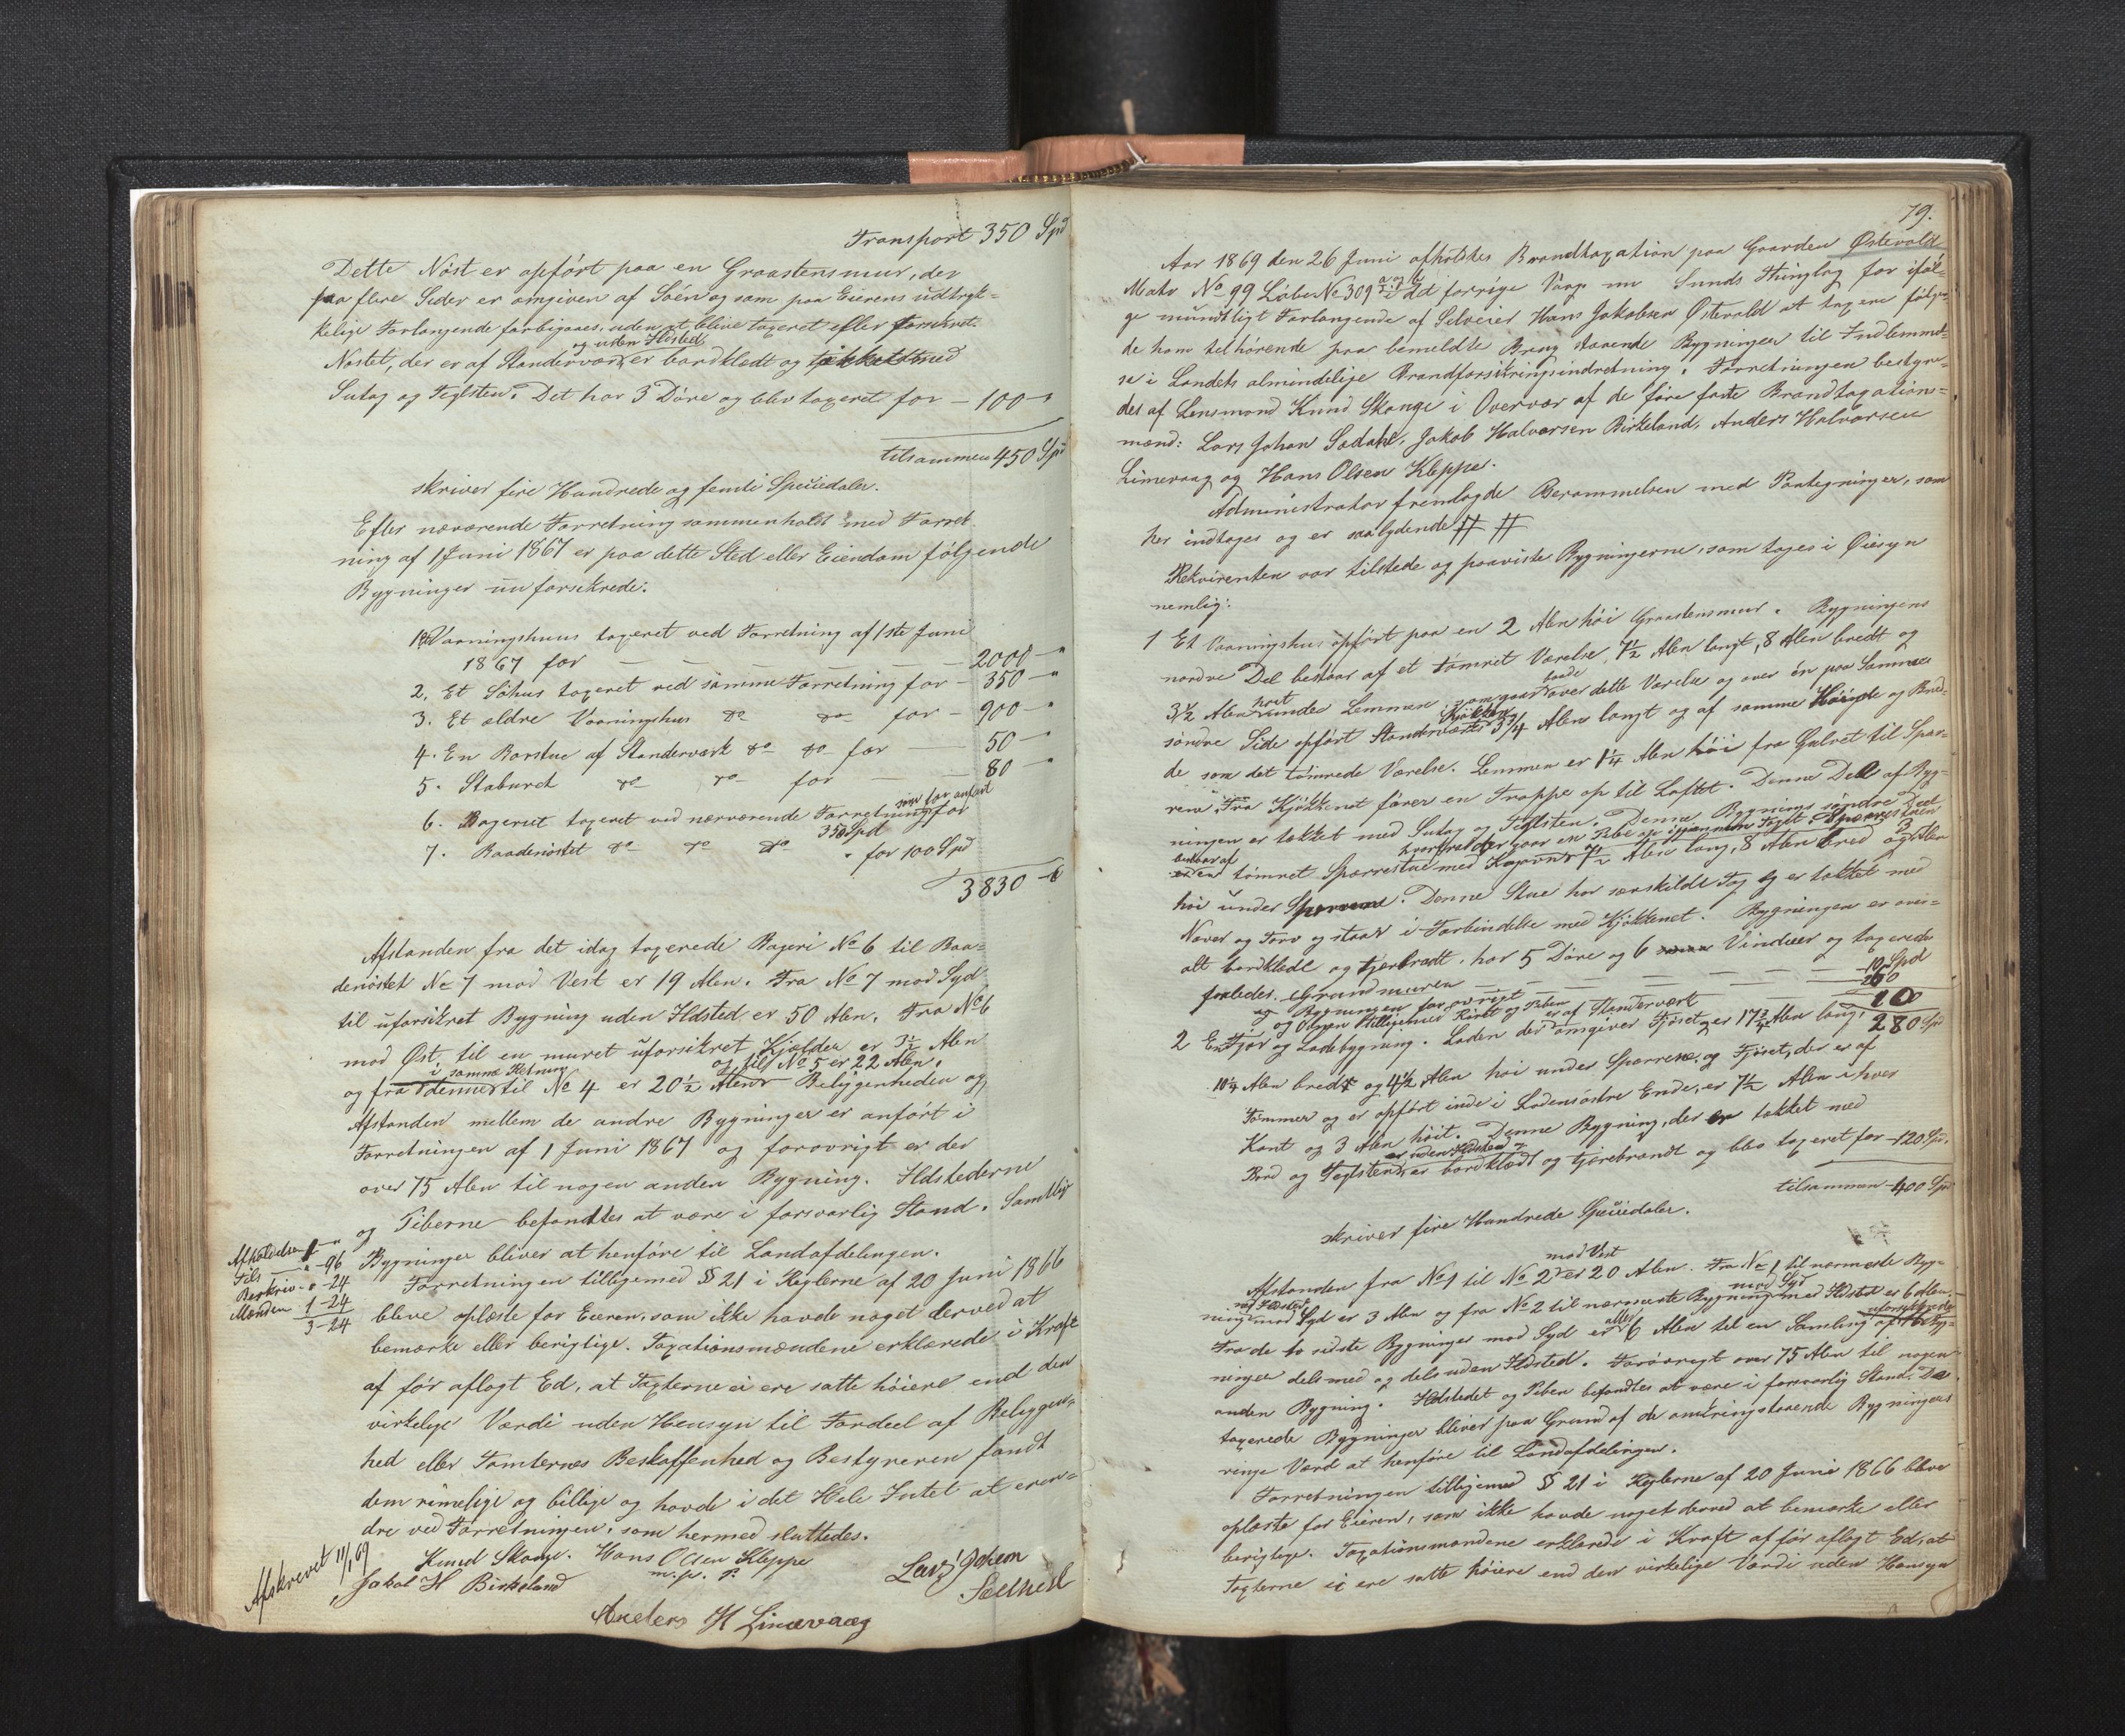 Transport 350 Spd
Dette Nøst er opført paa en Graastensmur, der
paa flere Sider er omgiven af Søen og som paa Eierens udtryk=
kelige Forlangende forbigaaes, uden at blive taxeret eller forsikret.
og uden Ildsted
Nøstet, der er af Standerværk, er bordklædt og tækket med
Sutag og Teglsten. Det har 3 Døre og blev taxeret for — 100 "
tilsammen 450 Spd
skriver fire Hundrede og femti Speciedaler.
Efter nærværende Forretning sammenholdt med Forret=
ning af 1 Juni 1867 er paa dette Sted eller Eiendom følgende
Bygninger nu forsikrede:
1. Vaaningshuus taxeret ved Forretning af 1ste Juni
1867 for — — — — — — 2000 — "
2. Et Søhus taxeret ved samme Forretning for — 350 — "
3. Et ældre Vaaningshus do do for — 900 — "
4. En Borstue af Standerværk do do for — 50 — "
5. Staburet do do for — — 80 — "
som før anført
6. Bageriet taxeret ved nærværende Forretning for
350 Spd
7. Baadenøstet do do do " for 100 Spd
3830 —
Afstanden fra det idag taxerede Bageri No 6 til Baa=
denøstet No 7 mod Vest er 19 Alen. Fra No 7 mod Syd
til uforsikret Bygning uden Ildsted er 50 Alen. Fra No 6
mod Øst til en muret uforsikret Kjælder er 3½ Alen
i samme Retning og til No 5 er 22 Alen.
og fra denne til No 4 er 20½ Alen Beliggenheden og
Afstanden mellem de andre Bygninger er anført i
Forretningen af 1 Juni 1867 og forøvrigt er der
over 75 Alen til nogen anden Bygning. Ildstederne
og Piberne befandtes at være i forsvarlig Stand. Samtlige
Bygninger bliver at henføre til Landafdelingen.
Afholdelsen 1 — "
Tils — " - 96
Beskriv - " - 24
Mænden 1 - 24
3 - 24
Forretningen tilligemed § 21 i Reglerne af 20 Juni 1866
bleve oplæste for Eieren, som ikke havde noget derved at
bemærke eller berigtige. Taxationsmændene erklærede i Kraft
af før aflagt Ed, at Taxterne ei ere satte høiere end den
virkelige Værdi uden Hensyn til Fordeel af Beliggen=
hed eller Tomternes Beskaffenhed og Bestyreren fandt
dem rimelige og billige og havde i det Hele Intet at erin=
dre ved Forretningen, som hermed sluttedes.
Knud Skaage. Hans Olsen Kleppe
m. p. P.
Lars Johan
Sædhal
Jakob H Birkeland
Anders H Limevaag
Afskrevet 11/1 69
79.
Aar 1869 den 26 Juni afholdtes Brandtaxation paa Gaarden Østevold
Matr No 99 Løbe No 309 a og b i det forrige Vaags nu Sunds Thinglag for iføl=
ge mundtligt Forlangende af Selveier Hans Jakobsen Østevold at taxere følgen=
de ham tilhørende paa bemeldte Brug staaende Bygninger til Indlemmel=
se i Landets almindelige Brandforsikringsindretning. Forretningen bestyre=
des af Lensmand Knud Skaage i Overvær af de føre faste Brandtaxations=
mænd: Lars Johan Sædahl, Jakob Halvorsen Birkeland, Anders Halvorsen
Limevaag og Hans Olsen Kleppe.
Administrator fremlagde Berammelsen med Paategninger, som
her indtages og er saalydende # #
Rekvirenten var tilstede og paaviste Bygningerne, som toges i Øiesyn
nemlig:
1 Et Vaaningshus opført paa en 2 Alen høi Graastensmur. Bygningens
nordre Del bestaar af et tømret Værelse, 7½ Alen langt, 8 Alen bredt og
3½ Alen høit under Lemmen, som gaar baade over dette Værelse og over én paa Sammes
søndre Side opført Standerværks Kjøkken 3¾ Alen langt og af samme Høide og Bred=
de som det tømrede Værelse. Lemmen er 1¼ Alen høi fra Gulvet til Spær=
rene. Fra Kjøkkenet fører en Trappe op til Loftet. Denne Del af Byg=
ningen er tækket med Sutag og Teglsten. Denne Bygnings søndre Del
hvorfra der gaar en Pibe
bestaar af
er en tømret Spærrestue med 7½ Alen lang, 8 Alen bred og 3 Alen
høi under Sperrene. Denne Stue har særskildt Tag og er tækket med
Næver og Torv og staar i Forbindelse med Kjøkkenet. Bygningen er over=
alt bordklædt og tjærebredt, har 5 Døre og 6 Vinduer og taxeredes
saaledes. Grundmuren — — — — — — 10 Spd
og Bygningen forøvrigt — — — — 260
og Ovnen tilligemed Røret og Piben — — — 10
280 Spd
2 En Fjøs og Ladebygning. Laden der er af Standerværk omgiver Fjøset, er 17¾ Alen lang,
10½ Alen bred og 4½ Alen høi under Spærrene, og Fjøset, der er af
Tømmer og er opført inde i Ladens østre Ende, er 7½ Alen i hver
Kant og 3 Alen høit. Denne Bygning, der er tækket med
er uden Ildsted og
Bord og Teglsten, er bordklædt og tjærebrædt og blev taxeret for — 120 Spd.
tilsammen — 400 Spd
skriver fire Hundrede Speciedaler.
mod Vest
Afstanden fra No 1 til No 2 er 20 Alen. Fra No 1 til nærmeste Byg=
med Ildsted mod Syd
ning mod Syd er 3 Alen og fra No 2 til nærmeste Bygning med Ildsted er 6 Alen.
Fra de to sidste Bygninger mod Syd er atter 6 Alen til en Samling af uforsikrede Byg=
ninger dels med og dels uden Ildsted. Forøvrigt over 75 Alen til nogen
anden Bygning. Ildstedet og Piben befandtes at være i forsvarlig Stand. De
taxerede Bygninger bliver paa Grund af de omkringstaaende Bygningers
ringe Værd at henføre til Landafdelingen.
Forretningen tilligemed § 21 i Reglerne af 20 Juni 1866 bleve
oplæste for Eieren, som ikke havde noget derved at bemærke eller
berigtige. Taxationsmændene erklærede i Kraft af før aflagt Ed, at
Taxterne ei ere satte høiere end den virkelige Værdi uden Hensyn